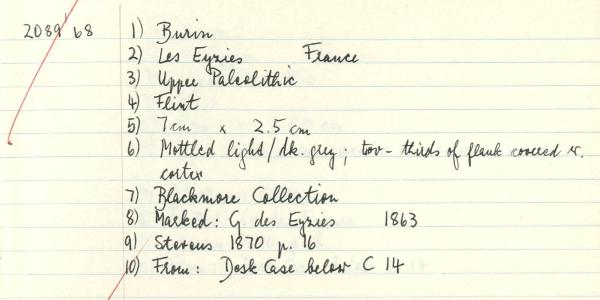 2089' 68 1) Burin
2) Les Eyzies France
3) Upper Paleolithic
4) Flint
5) 7cm x 2.5 cm
6) Mottled light/dk. grey; two-thirds of flank covered w.
cortex
7) Blackmore Collection
8) Marked: G des Eyzies 1863
9) Stevens 1870 p. 16
10) From: Desk Case below C 14